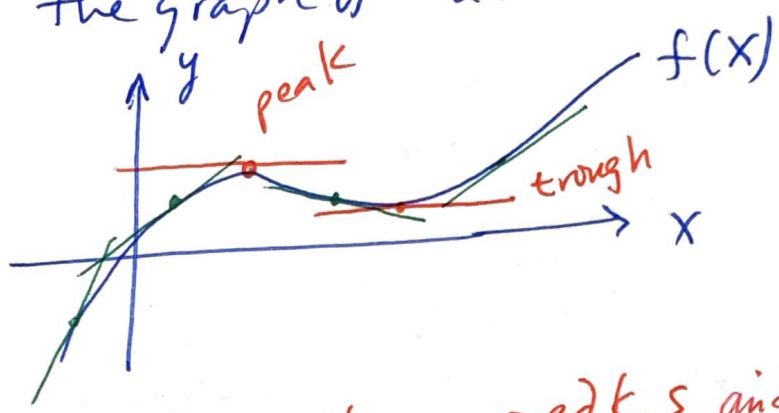 the graph of
y
peak
f(x)
trough
x